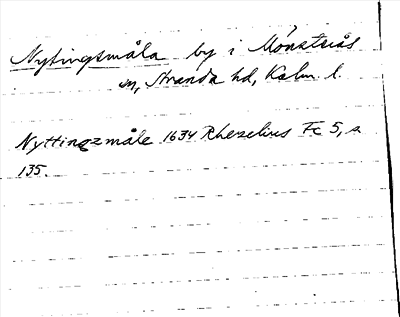 Nytingsmåla by i Mönsterås
sn, Stranda hd, Kalm. l.
Nyttingzmåle 1634 Rhezelius Fc 5, s.
135.